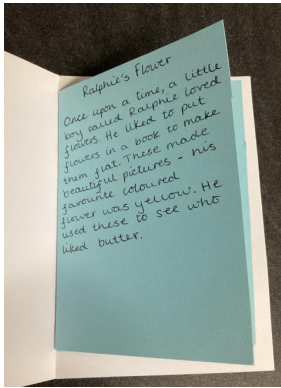 Ralphie's Flower
Once upon a time, a little
boy called Ralphie loved
flowers. He liked to put
flowers in a book to make
them flat. These made
beautiful pictures - his
favourite coloured
flower was yellow. He
used these to see who
liked butter.